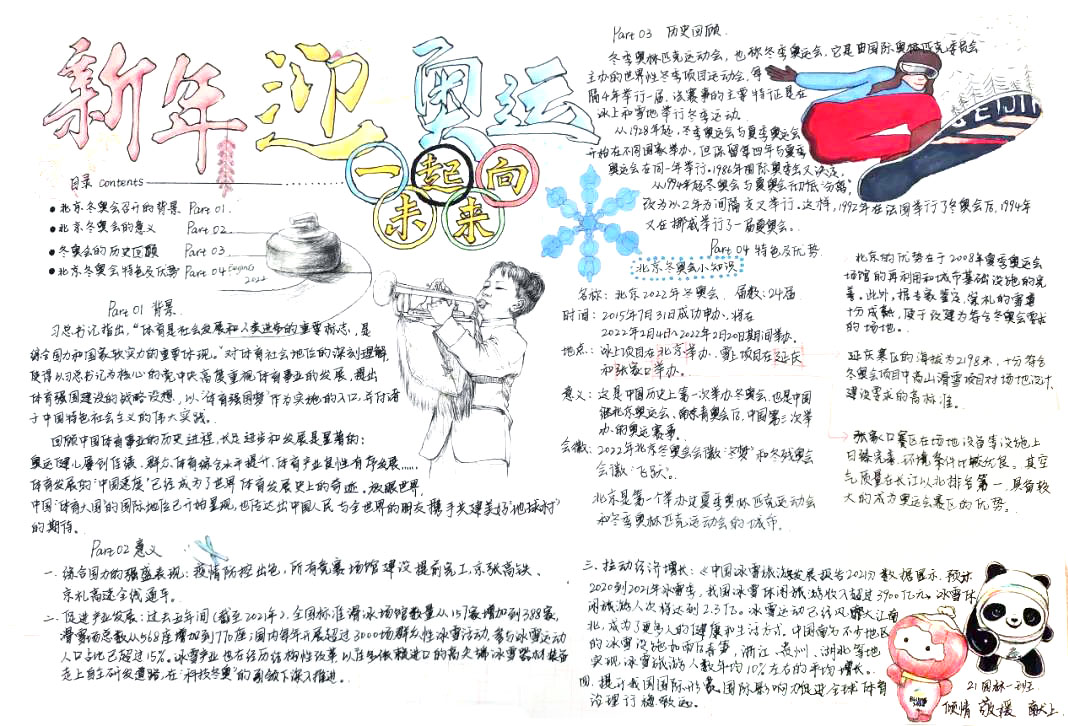 新年迎奥运
一起向
未来
目录 contents
北京冬奥会召开的背景 Part 01.
北京冬奥会的意义 Part 02
冬奥会的历史回顾 Part 03
北京冬奥会特色及优势 Part 04
2022
Part 01 背景.
习总书记指出,“体育是社会发展和人类进步的重要标志,是
综合国力和国家软实力的重要体现。”对体育社会地位的深刻理解,
使得以习总书记为核心的党中央高度重视体育事业的发展,提出
体育强国建设的战略设想,以“体育强国梦”作为实施的入口,并付诸
于中国特色社会主义的伟大实践。
回顾中国体育事业的历史进程,长足进步和发展是显著的:
奥运健儿屡创佳绩、群众体育综合水平提升、体育产业良性有序发展……
体育发展的“中国速度”已经成为了世界体育发展史上的奇迹。放眼世界,
中国“体育大国”的国际地位已于初显现,也传达出中国人民与全世界的朋友携手共建美好“地球村”
的期待。
Part 02 意义
一. 综合国力的强盛表现:疫情防控出色,所有竞赛场馆建设提前完工,京张高铁、
京礼高速全线通车。
二. 促进产业发展:过去五年间(截至2021年2,全国标准滑冰场馆数量从157家增加到388家,
滑雪场总数从568座增加到770座;国内每年开展超过3000场群众性冰雪活动,参与冰雪运动
人口占比已超过15%。冰雪产业也在经历结构性改革以往多依赖进口的高尖端冰雪器材装备
走上自主研发道路,在“科技冬奥”的引领下深入推进。
Part 03 历史回顾.
冬季奥林匹克运动会,也称冬季奥运会,它是由国际奥林匹克委员会
主办的世界性冬季项目运动会,每
隔4年举行一届.该赛事的主要特征是在
冰上和雪地举行冬季运动.
从1928年起,冬季奥运会与夏季奥运会
开始在不同国家举办,但保留每四年与夏季
奥运会在同一年举行。1986年国际奥委会又决定,
从1994年起冬奥会与夏奥会开始“分离”,
改为以2年为间隔交叉举行,这样,1992年在法国举行了冬奥会后,1994年
又在挪威举行了一届冬奥会。
Part 04 特色及优势.
北京冬奥会小知识
名称:北京2022年冬奥会. 届数:24届
时间:2015年7月31日成功申办,将在
2022年2月4日~2022年2月20日期间举办.
地点:冰上项目在北京举办、雪上项目在延庆
和张家口举办。
意义:这是中国历史上第一次举办冬奥会,也是中国
继北京奥运会、南京青奥会后,中国第三次举
办的奥运赛事。
会徽:2022年北京冬奥会会徽“冬梦”和冬残奥会
会徽“飞跃”。
北京是第一个举办过夏季奥林匹克运动会
和冬季奥林匹克运动会的城市.
北京的优势在于2008年夏季奥运会
场馆的再利用和城市基础设施的完
善。此外,据专家鉴定,崇礼的雪量
十分成熟,便于改建为符合冬奥会需求
的场地。
延庆赛区的海拔为2198米,十分符合
冬奥会项目中高山滑雪项目对场地设计
建设需求的高标准。
张家口赛区在场地设备等设施上
日臻完善,环境条件比较优良。其空
气质量在长江以北排名第一,具备较
大的成为奥运会赛区的优势。
三. 拉动经济增长:《中国冰雪旅游发展报告2021》数据显示,预计
2020到2021年冰雪季,我国冰雪休闲旅游收入超过3900亿元。冰雪休
闲旅游人次将达到2.3亿。冰雪运动已经风靡大江南
北,成为了更多人的健康和生活方式.中国南方不少地区
的冰雪设施如雨后春笋,浙江、贵州、湖北等地
实现冰雪旅游人数年均10%左右的平均增长。
四. 提升我国国际形象、国际影响力促进全球体育
治理行稳致远.
21园林一班
倾情 献上.